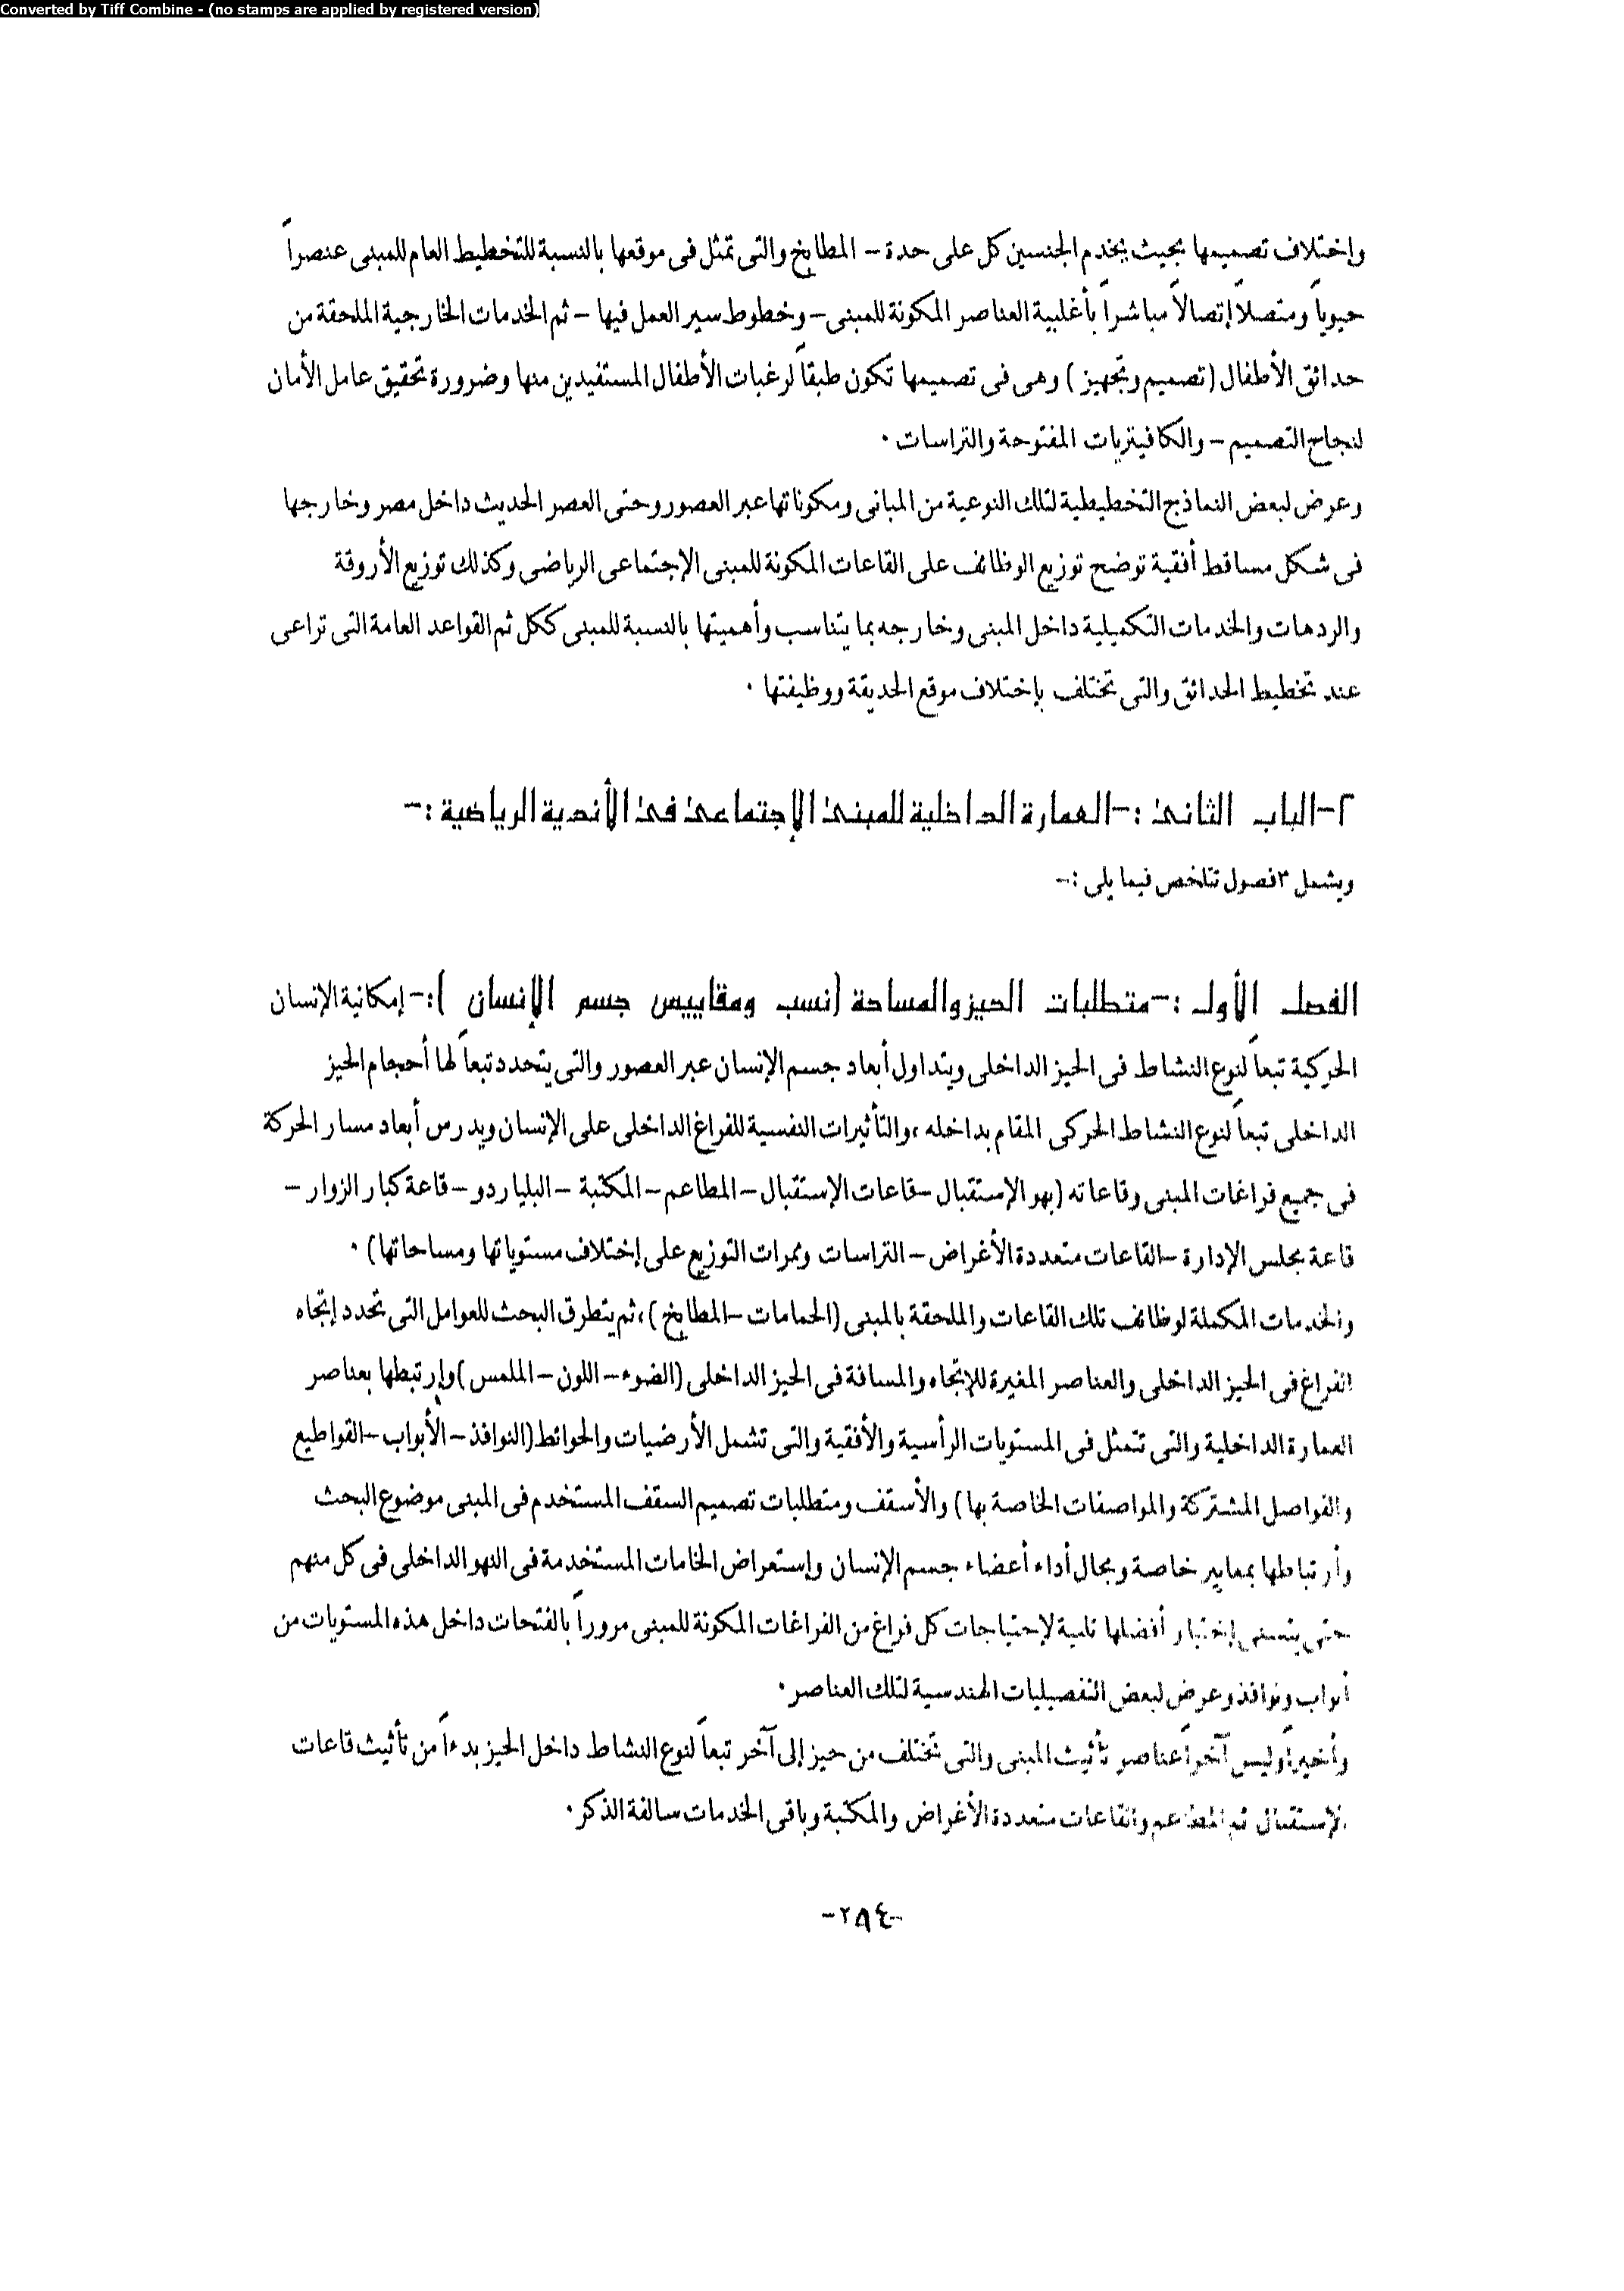 Converted by Tiff Combine - (no stamps are applied by registered version)
وإختلاف تصميمها بحيث يخدم الجنسين كل على حدة - المطابخ والتى تمثل فى موقعها بالنسبة للتخطيط العام للمبنى عنصراً
حيوياً ومتصلاً إتصالاً مباشراً بأغلبية العناصر المكونة للمبنى - وخطوط سير العمل فيها - ثم الخدمات الخارجية الملحقة من
حدائق الأطفال (تصميم وتجهيز) وهى فى تصميمها تكون طبقاً لرغبات الأطفال المستفيدين منها وضرورة تحقيق عامل الأمان
لنجاح التصميم - والكافيتريات المفتوحة والتراسات ٠
وعرض لبعض النماذج التخطيطية لتلك النوعية من المبانى ومكوناتها عبر العصور وحتى العصر الحديث داخل مصر وخارجها
فى شكل مساقط أفقية توضح توزيع الوظائف على القاعات المكونة للمبنى الإجتماعى الرياضى وكذلك توزيع الأروقة
والردهات والخدمات التكميلية داخل المبنى وخارجه بما يتناسب وأهميتها بالنسبة للمبنى ككل ثم القواعد العامة التى تراعى
عند تخطيط الحدائق والتى تختلف بإختلاف موقع الحديقة ووظيفتها ٠
٢- الباب الثانى :- العمارة الداخلية للمبنى الإجتماعى فى الأندية الرياضية :-
ويشمل ٣ فصول تتلخص فيما يلى :-
الفصل الأول :- متطلبات الحيز والمساحة (نسب ومقاييس جسم الإنسان) :- إمكانية الإنسان
الحركية تبعاً لنوع النشاط فى الحيز الداخلى ويتداول أبعاد جسم الإنسان عبر العصور والتى يتحدد تبعاً لها أحجام الحيز
الداخلى تبعاً لنوع النشاط الحركى المقام بداخله ، والتأثيرات النفسية للفراغ الداخلى على الإنسان ويدرس أبعاد مسار الحركة
فى جميع فراغات المبنى وقاعاته (بهو الإستقبال - قاعات الإستقبال - المطاعم - المكتبة - البلياردو - قاعة كبار الزوار -
قاعة مجلس الإدارة - القاعات متعددة الأغراض - التراسات وممرات التوزيع على إختلاف مستوياتها ومساحاتها) ٠
والخدمات المكملة لوظائف تلك القاعات والملحقة بالمبنى (الحمامات - المطابخ) ، ثم يتطرق البحث للعوامل التى تحدد إتجاه
الفراغ فى الحيز الداخلى والعناصر المغيرة للإتجاه والمسافة فى الحيز الداخلى (الضوء - اللون - الملمس) وإرتبطها بعناصر
العمارة الداخلية والتى تتمثل فى المستويات الرأسية والأفقية والتى تشمل الأرضيات والحوائط (النوافذ - الأبواب - القواطيع
والفواصل المشتركة والمواصفات الخاصة بها) والأسقف ومتطلبات تصميم السقف المستخدم فى المبنى موضوع البحث
وأرتباطها بمعايير خاصة ومجال أداء أعضاء جسم الإنسان وإستعراض الخامات المستخدمة فى النهو الداخلى فى كل منهم
حتى يتسنى إختيار أفضلها تلبية لإحتياجات كل فراغ من الفراغات المكونة للمبنى مروراً بالفتحات داخل هذه المستويات من
أبواب ونوافذ وعرض لبعض التفصيليات الهندسية لتلك العناصر ٠
وأخيراً وليس آخراً عناصر تأثيث المبنى والتى تختلف من حيز إلى آخر تبعاً لنوع النشاط داخل الحيز بدءاً من تأثيث قاعات
الإستقبال ثم المطاعم والقاعات متعددة الأغراض والمكتبة وباقى الخدمات سالفة الذكر ٠
-٢٨٤-